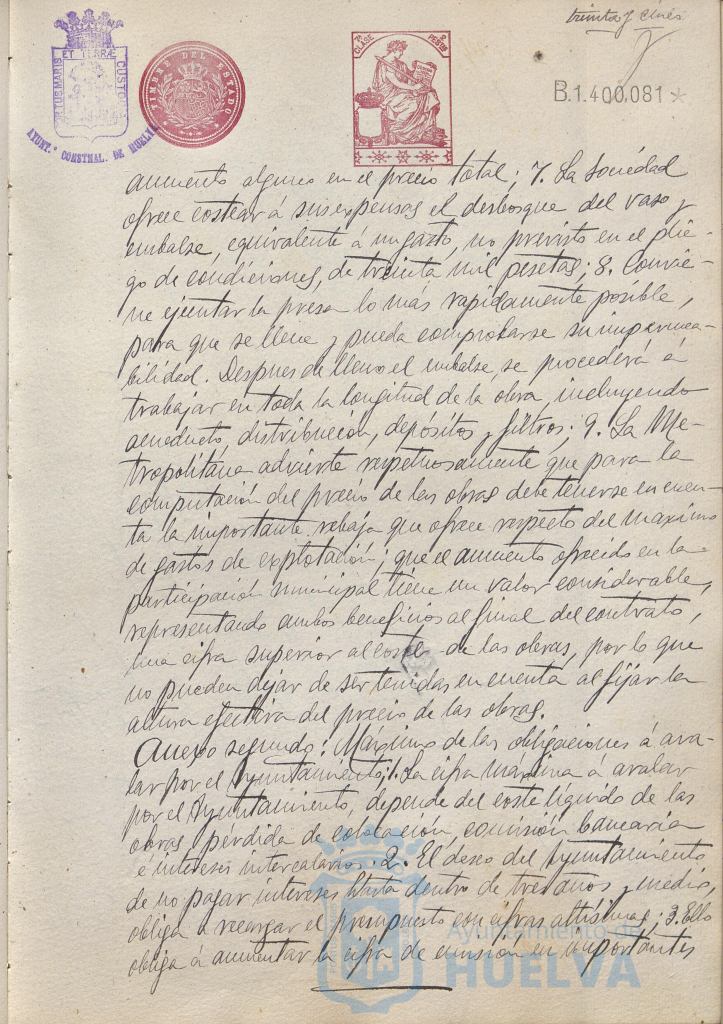 treinta y cinco
PORTUS MARIS ET TERRÆ CUSTODIA
AYUNT.º CONSTNAL. DE HUELVA
TIMBRE DEL ESTADO
7ª CLASE
PESETAS
B.1.400,081 *
aumento alguno en el precio total; 7. La Sociedad
ofrece costear á sus expensas el desbosque del vaso y
embalse, equivalente á un gasto, no previsto en el plie-
go de condiciones, de treinta mil pesetas; 8. Convie-
ne ejecutar la presa lo más rapidamente posible,
para que se llene y pueda comprobarse su impermea-
bilidad. Despues de lleno el embalse, se procederá á
trabajar en toda la longitud de la obra, incluyendo
acueducto, distribución, depósitos y filtros; 9. La Me-
tropolitana advierte respetuosamente que para la
computación del precio de las obras debe tenerse en cuen-
ta la importante rebaja que ofrece respecto del maximo
de gastos de explotación; que el aumento ofrecido en la
participación municipal tiene un valor considerable,
representando ambos beneficios al final del contrato,
una cifra superior al coste de las obras, por lo que
no pueden dejar de ser tenidas en cuenta al fijar la
altura efectiva del precio de las obras.
Anexo segundo: Máximo de las obligaciones á ava-
lar por el Ayuntamiento; 1. La cifra máxima á avalar
por el Ayuntamiento, depende del coste líquido de las
obras, pérdida de colocación, comisión bancaria
é intereses intercalarios. 2. El deseo del Ayuntamiento
de no pagar intereses hasta dentro de tres años y medio,
obliga á recargar el presupuesto con cifras altísimas; 3. Ello
obliga á aumentar la cifra de emisión en importantes
Ayuntamiento de
HUELVA